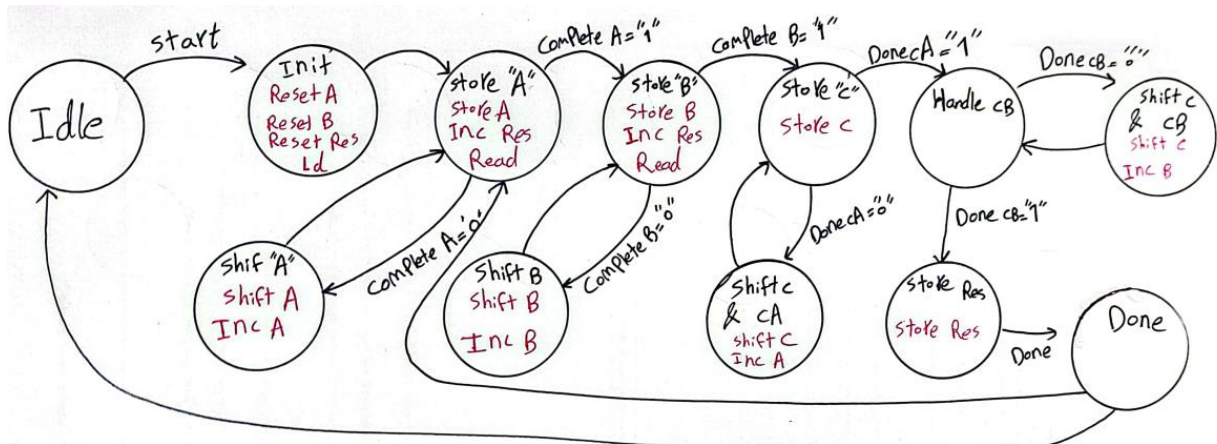 start
Idle
Init
Reset A
Reset B
Reset Res
Ld
store "A"
store A
Inc Res
Read
Complete A="1"
store "B"
store B
Inc Res
Read
Complete B="1"
store "c"
store c
DonecA="1"
Handle cB
DonecB="0"
shift c
& cB
shift c
Inc B
shif "A"
shift A
Inc A
Complete A="0"
shift B
shift B
Inc B
Complete B="0"
shift c
& cA
shift c
Inc A
DonecA="0"
DonecB="1"
store Res
store Res
Done
Done